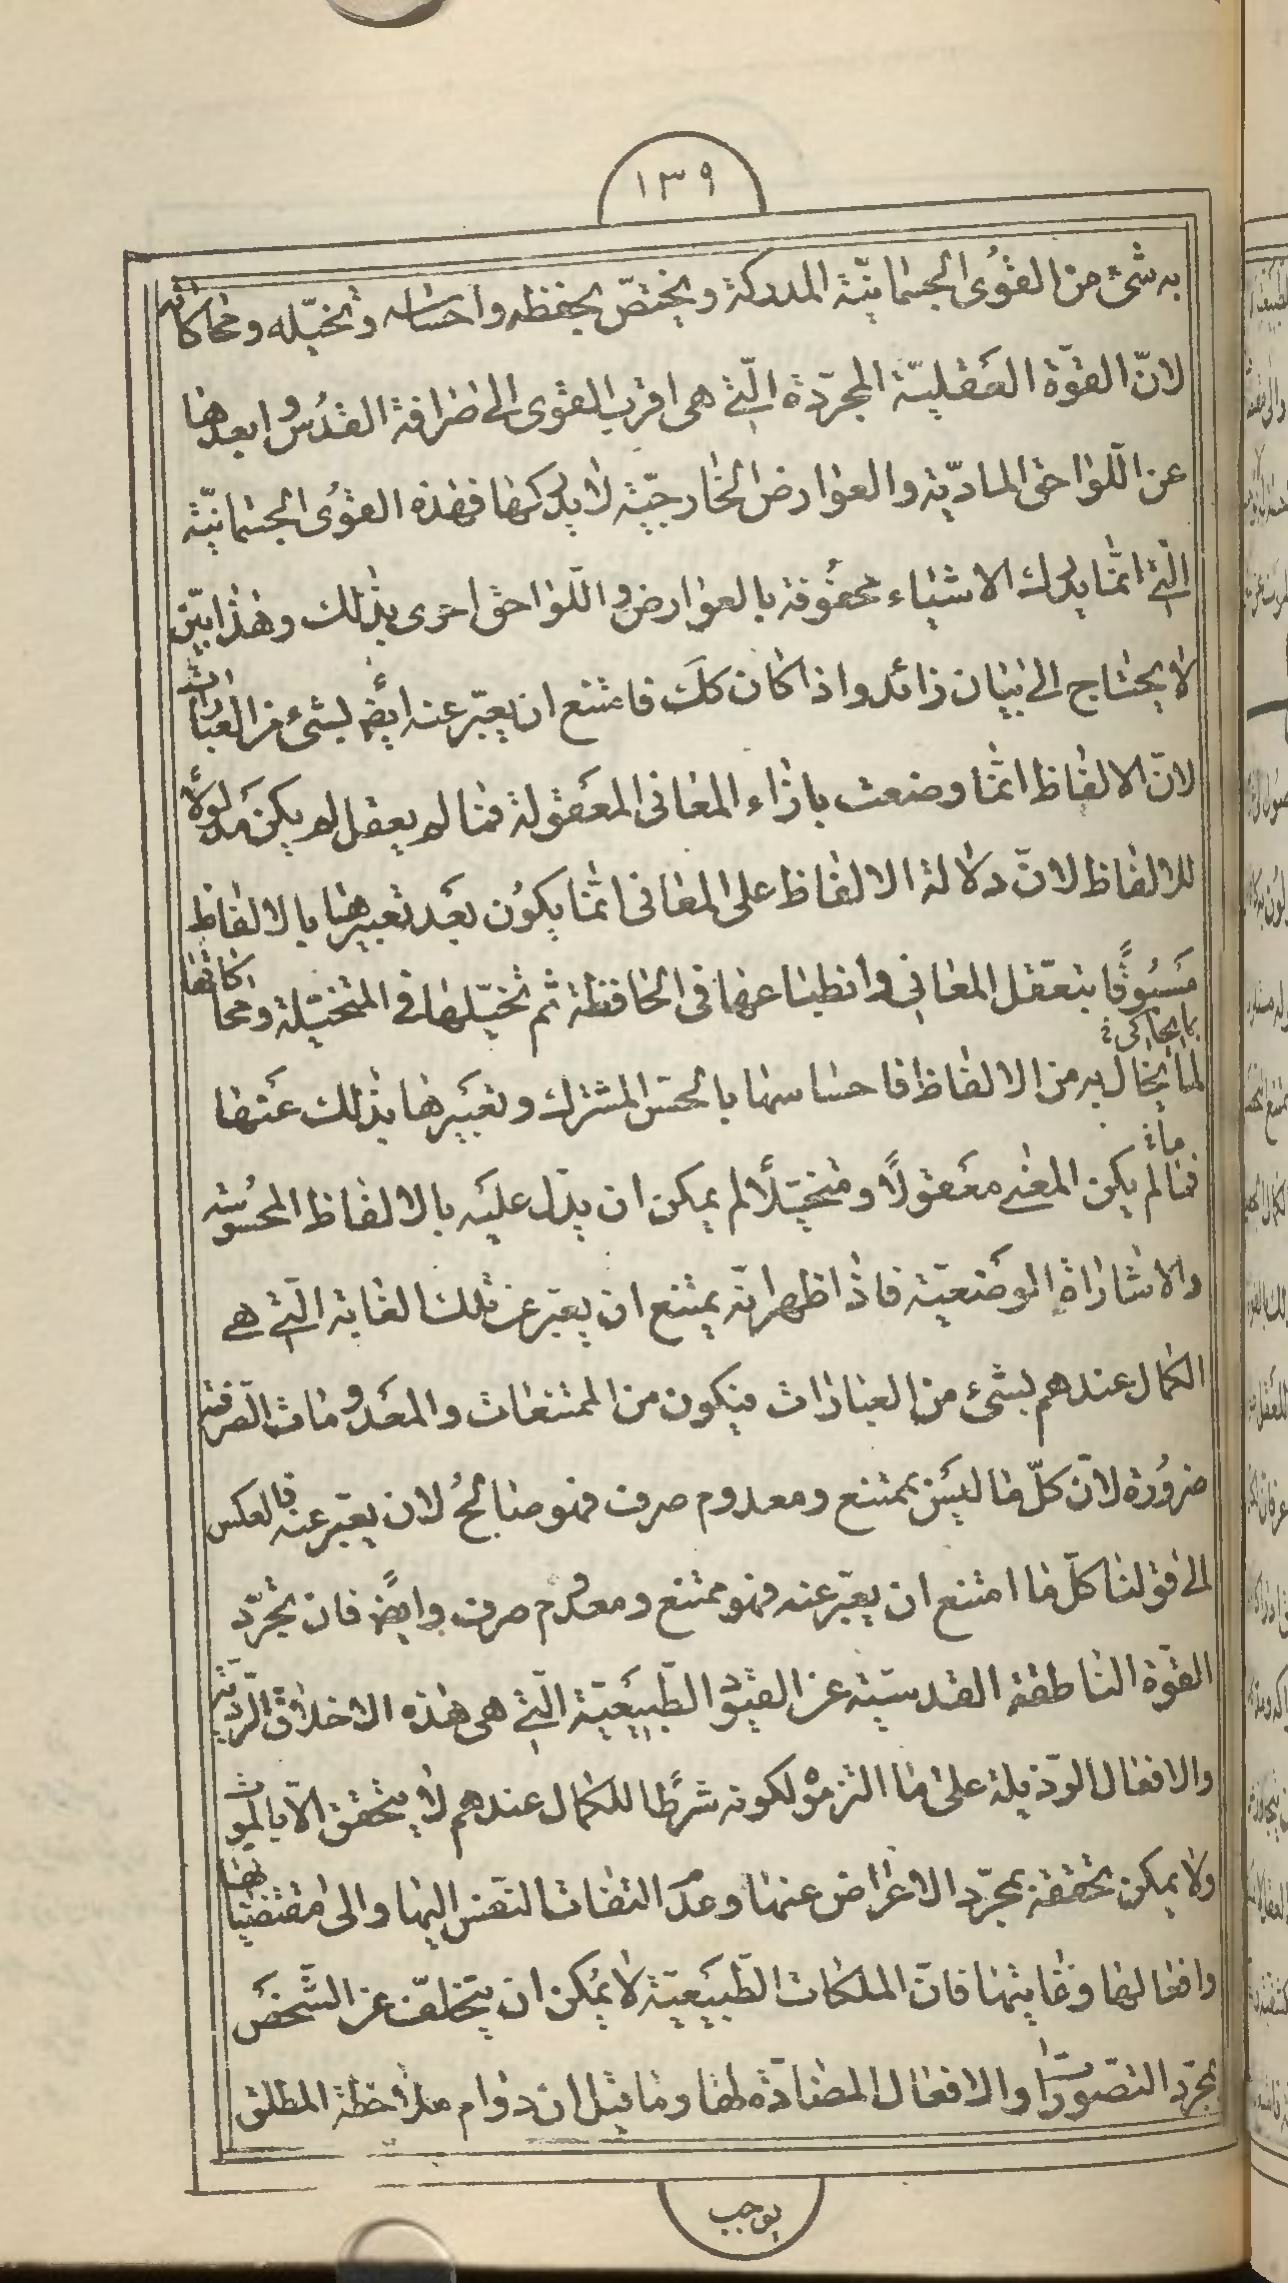 ١٣٩
به شئ من القوى الجسمانيّة المدركة ويختصّ بحفظه واحساسه وتخيّله ومحاكاته
لانّ القوّة العقليّة المجرّدة الّتى هى اقرب القوى الى صرافة القدس وابعدها
عن اللّواحق الماديّة والعوارض الخارجيّة لا يدركها فهذه القوى الجسمانيّة
الّتى انّما يدرك الاشياء محفوفة بالعوارض واللّواحق احرى بذلك وهذا بيّن
لا يحتاج الى بيان زائد واذا كان كك فامتنع ان يعبّر عنه ايضا بشئ من العبارات
لانّ الالفاظ انّما وضعت بازاء المعانى المعقولة فما لم يعقل لم يكن مدلولاً
للالفاظ لانّ دلالة الالفاظ على المعانى انّما يكون بعد تعبيرها بالالفاظ
مسبوقًا بتعقل المعانى وانطباعها فى الحافظة ثم تخيّلها فى المتخيّلة ومحاكاتها
بما يحاكى
لما يخال به من الالفاظ فاحساسها بالحسّ المشترك وتعبيرها بذلك عنها
ما
فما لم يكن المعنى معقولًا ومتخيّلًا لم يمكن ان يدّل عليه بالالفاظ المحسوسة
والاشاراة الموضعيّة فاذا ظهر انّه يمتنع ان يعبّر عن تلك الغاية الّتى هى
الكمال عندهم بشئ من العبارات فيكون من الممتنعات والمعدومات الصّرفة
ضرورة لانّ كلّ ما ليس بممتنع ومعدوم صرف فهو صالحُ لان يعبّر عنه فالعكس
الى قولنا كلّ ما امتنع ان يعبّر عنه فهو ممتنع ومعدوم صرف وايضًا فان تجرّد
القوّة الناطقة القدسيّة عن القيود الطّبيعيّة الّتى هى هذه الاخلاق الرّديّة
والافعال الرّذيلة على ما التزموْ لكونه شرطًا للكمال عندهم لا يتحقق الّا بالموت
ولا يمكن تحققه بمجرّد الاعراض عنها وعدم التفات النّفس اليها والى مقتضياتها
وافعالها وغايتها فانّ الملكات الطّبيعيّة لا يمكن ان يتخلّف عن الشّخص
بمجرّد التصوّرات والافعال المضادّة لها وما قيل ان دوام ملاحظة المطلق
يوجب